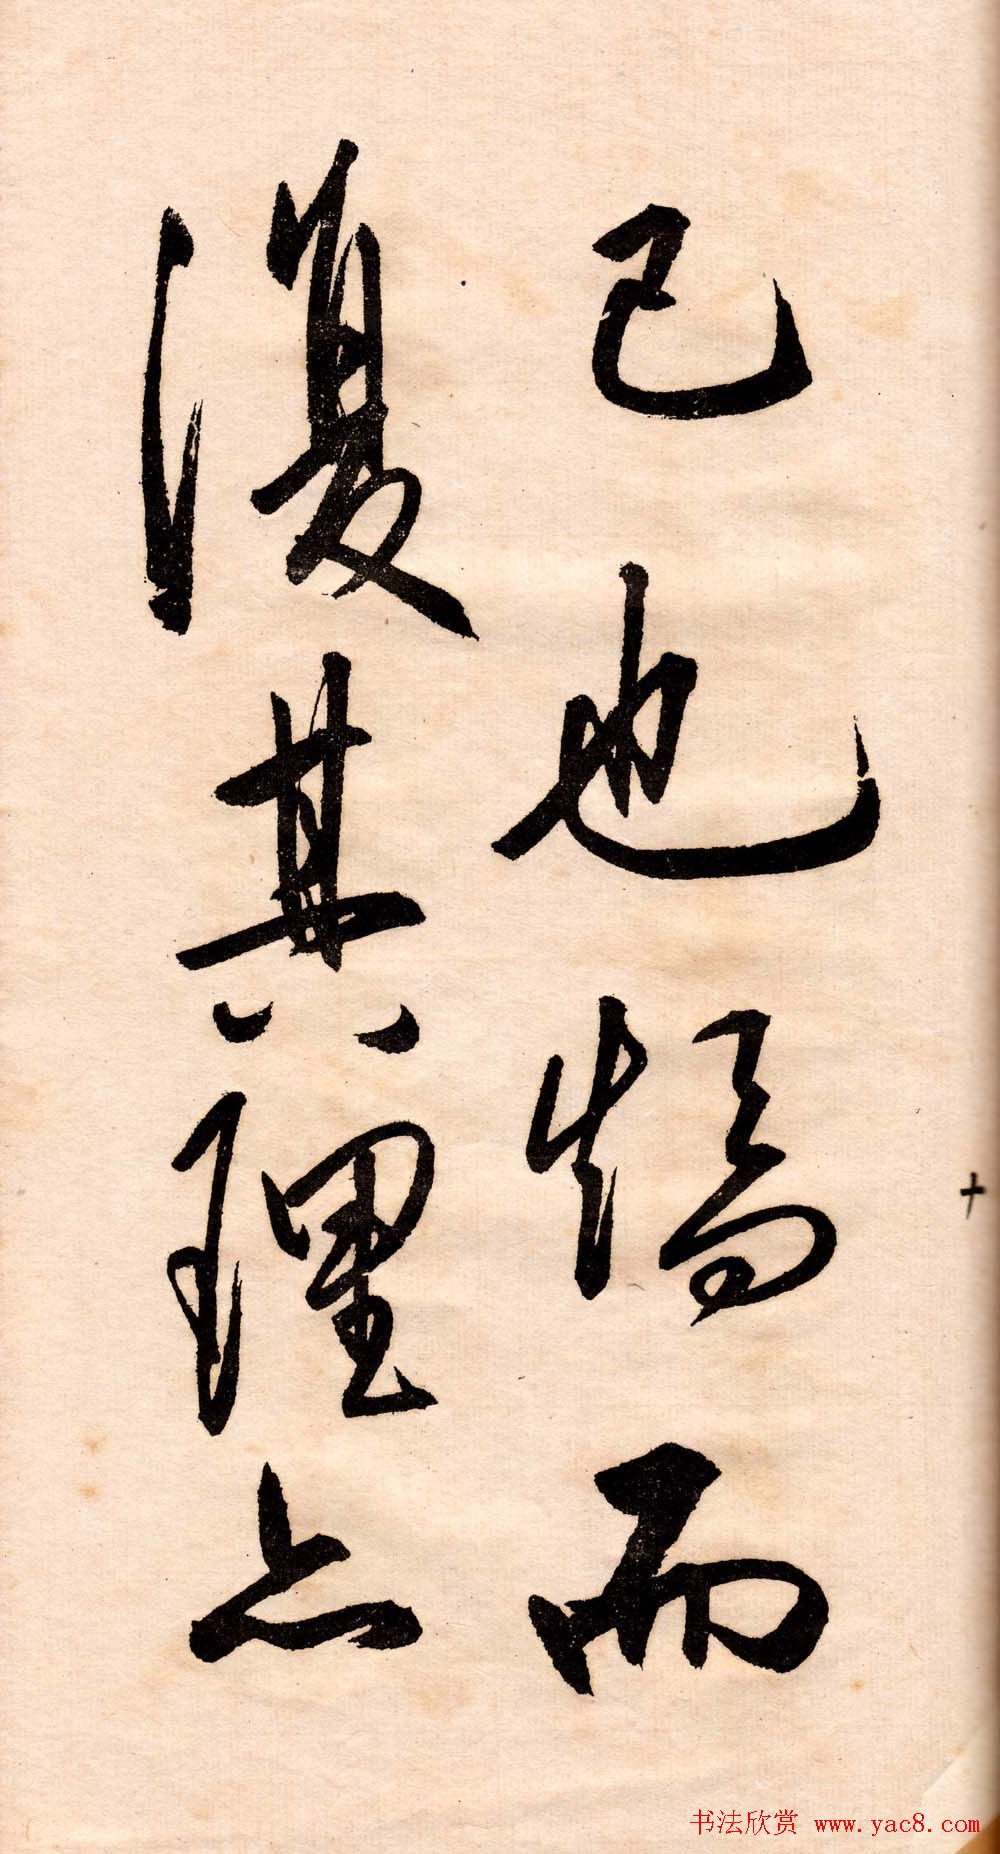 已也 而
復其理
十
书法欣赏 www.yac8.com